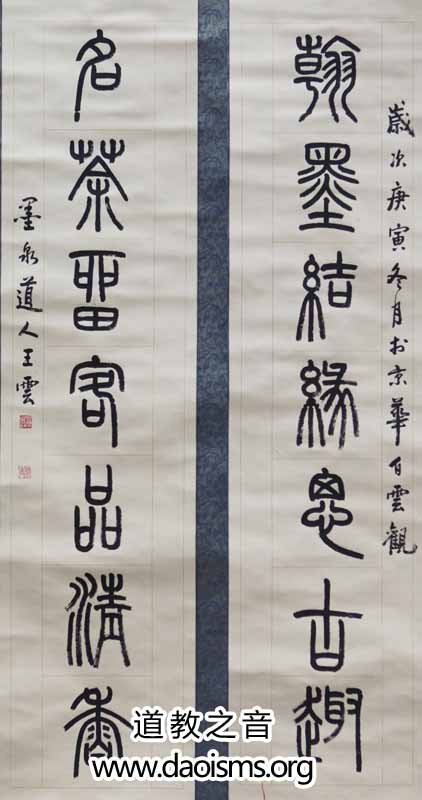 歲次庚寅冬月於京華白雲觀
翰墨結緣思古趣
名茶留客品清香
墨泉道人王雲
道教之音
www.daoisms.org